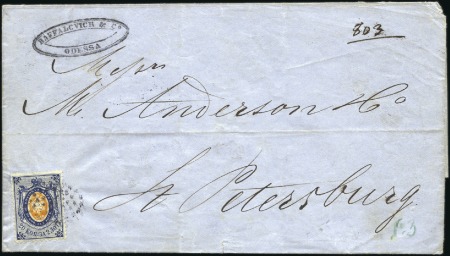 RAFFALOVICH & Co
ODESSA
803
Messrs
M. Anderson & Co
St Petersburg